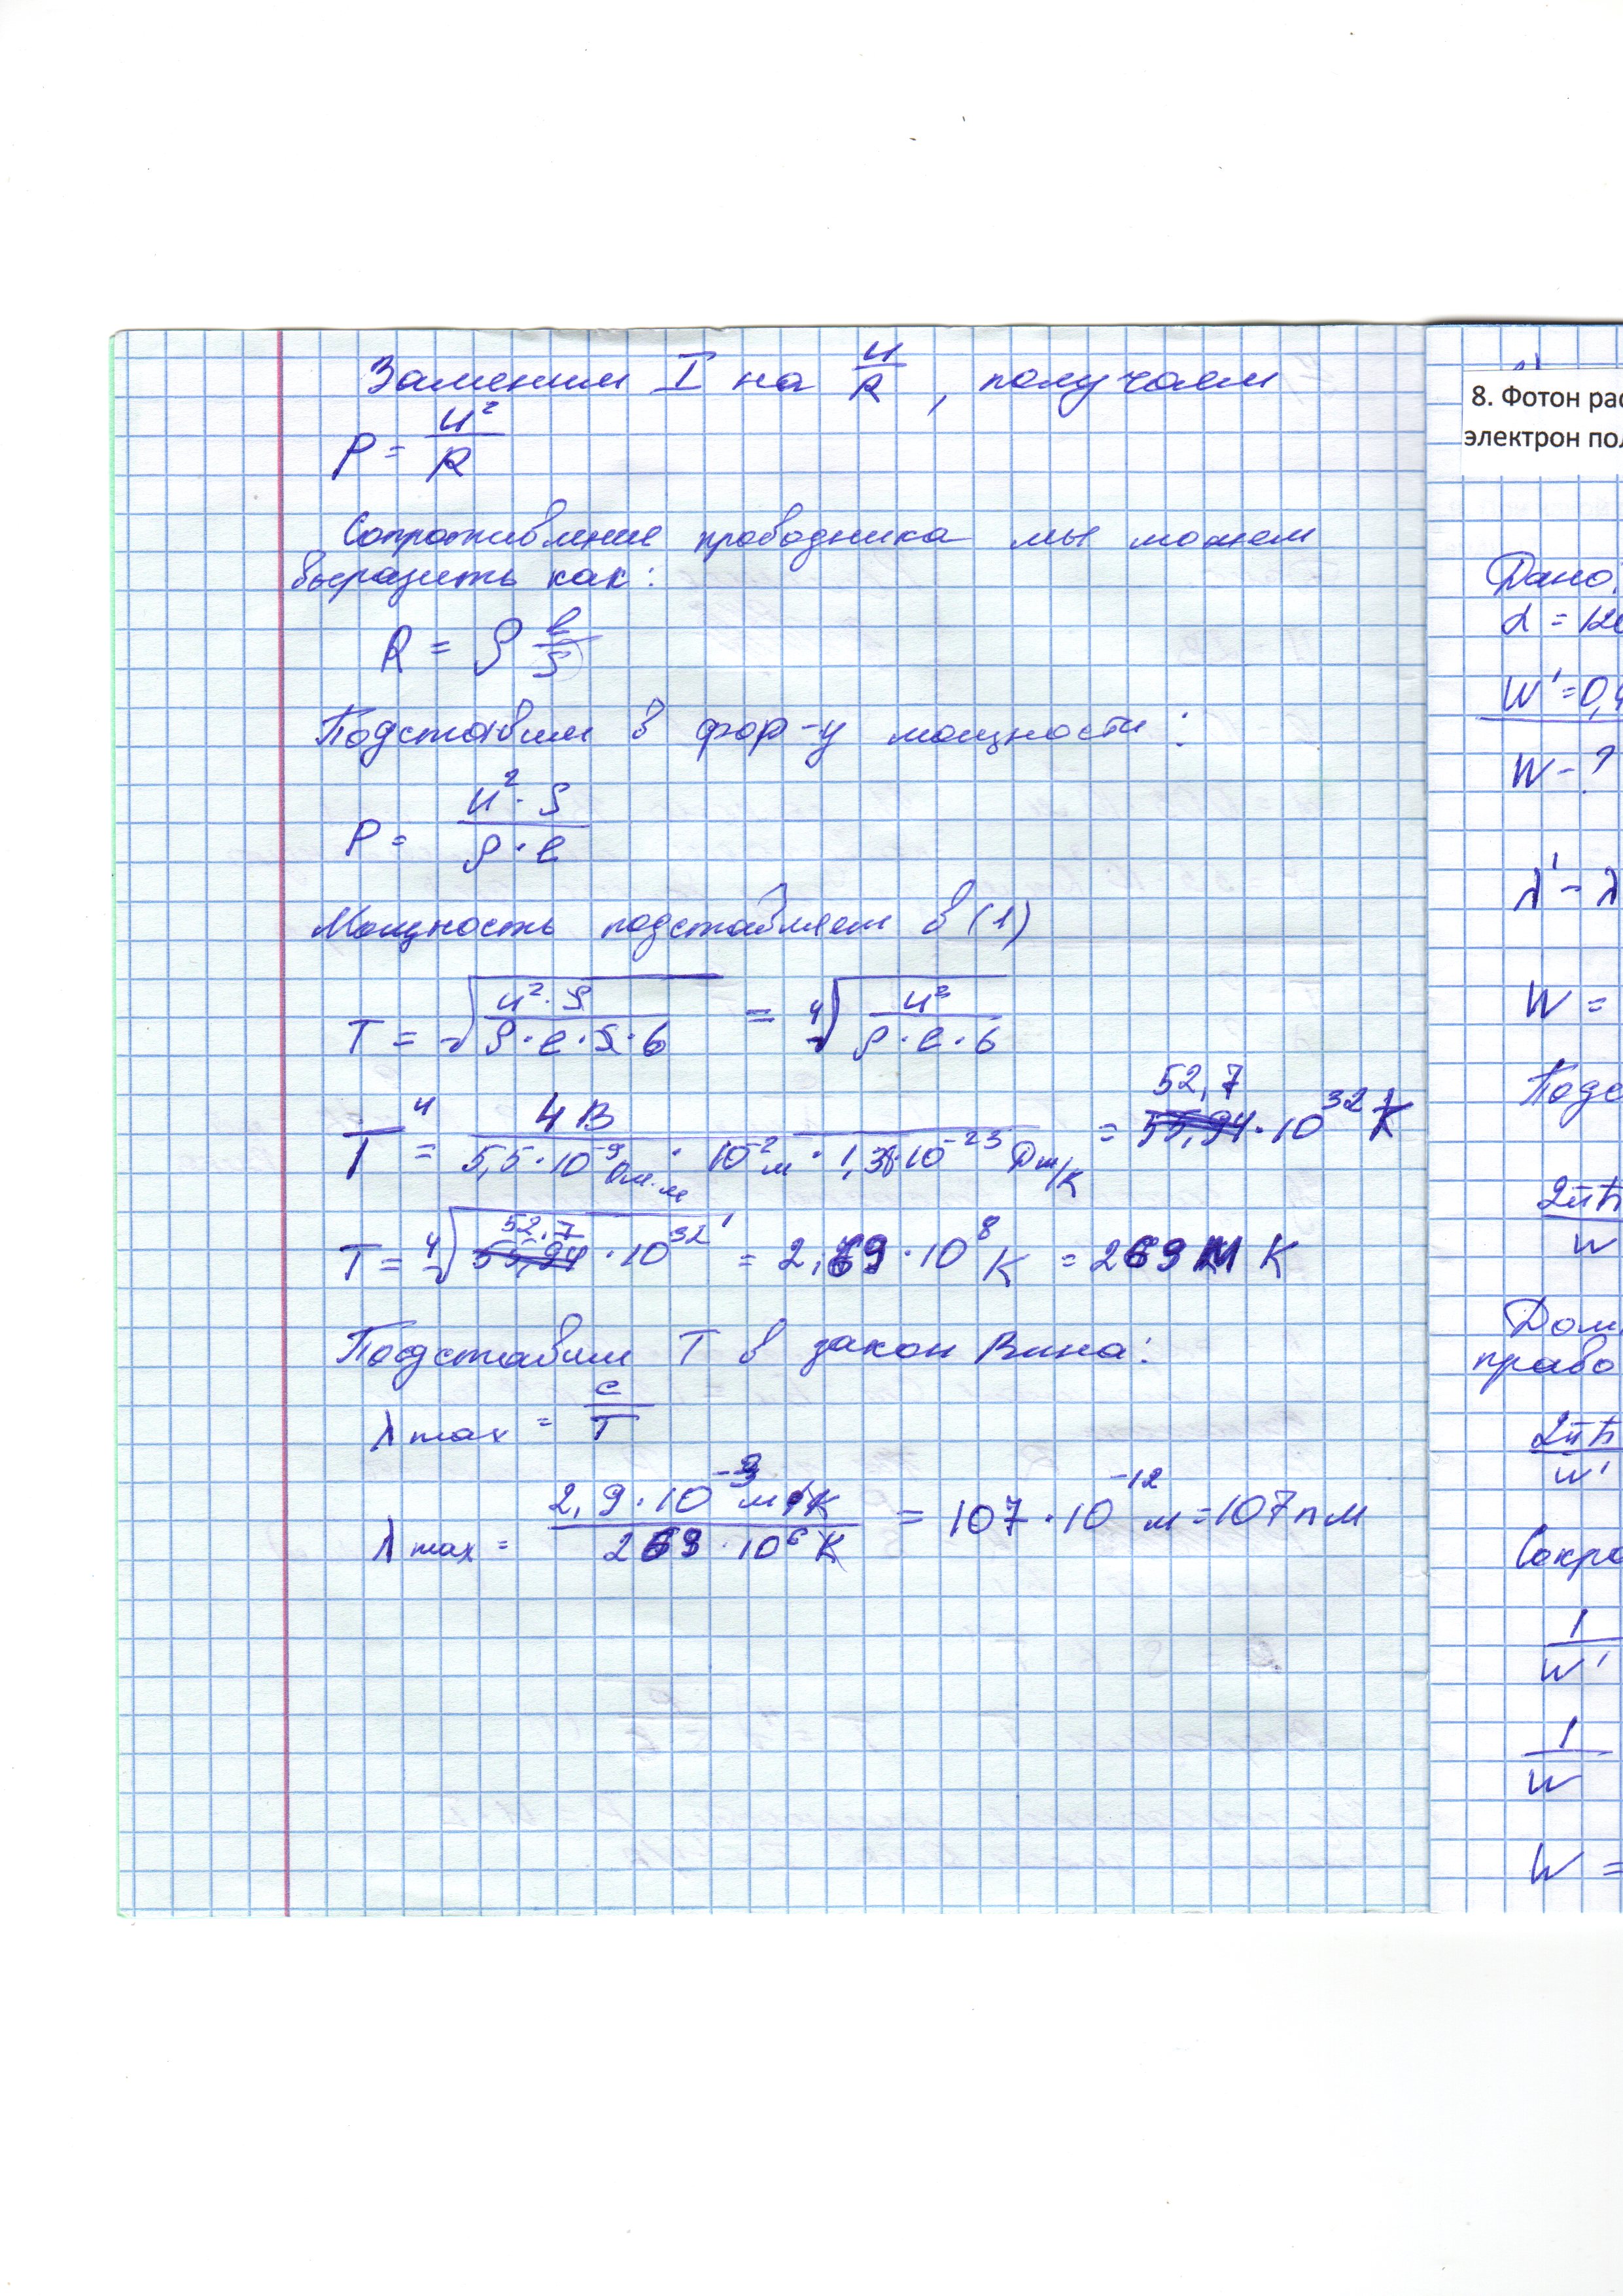 Заменим I на U/R, получаем
P = U²/R
Сопротивление проводника мы можем
выразить как:
R = ρ l/S
Подставим в фор-у мощности:
P = U²·S / ρ·l
Мощность подставляем в (1)
T = √(U²·S / ρ·l·S·б) = ⁴√(U² / ρ·l·б)
T⁴ = 4В / 5,5·10⁻⁹ Ом·м · 10⁻² м · 1,38·10⁻²³ Дж/К = 52,7 · 10³² К
T = ⁴√(52,7 · 10³²) = 2,69 · 10⁸ К = 269 М К
Подставим T в закон Вина:
λ max = c/T
λ max = 2,9·10⁻³ м·К / 269·10⁶ К = 107·10⁻¹² м = 107 пм
8. Фотон рас
электрон пол
Дано:
W' = 0,4
W - ?
λ' - λ
W =
Подс
2πħ
W
2πħ
W'
Сокра
1
W'
1
W
W =